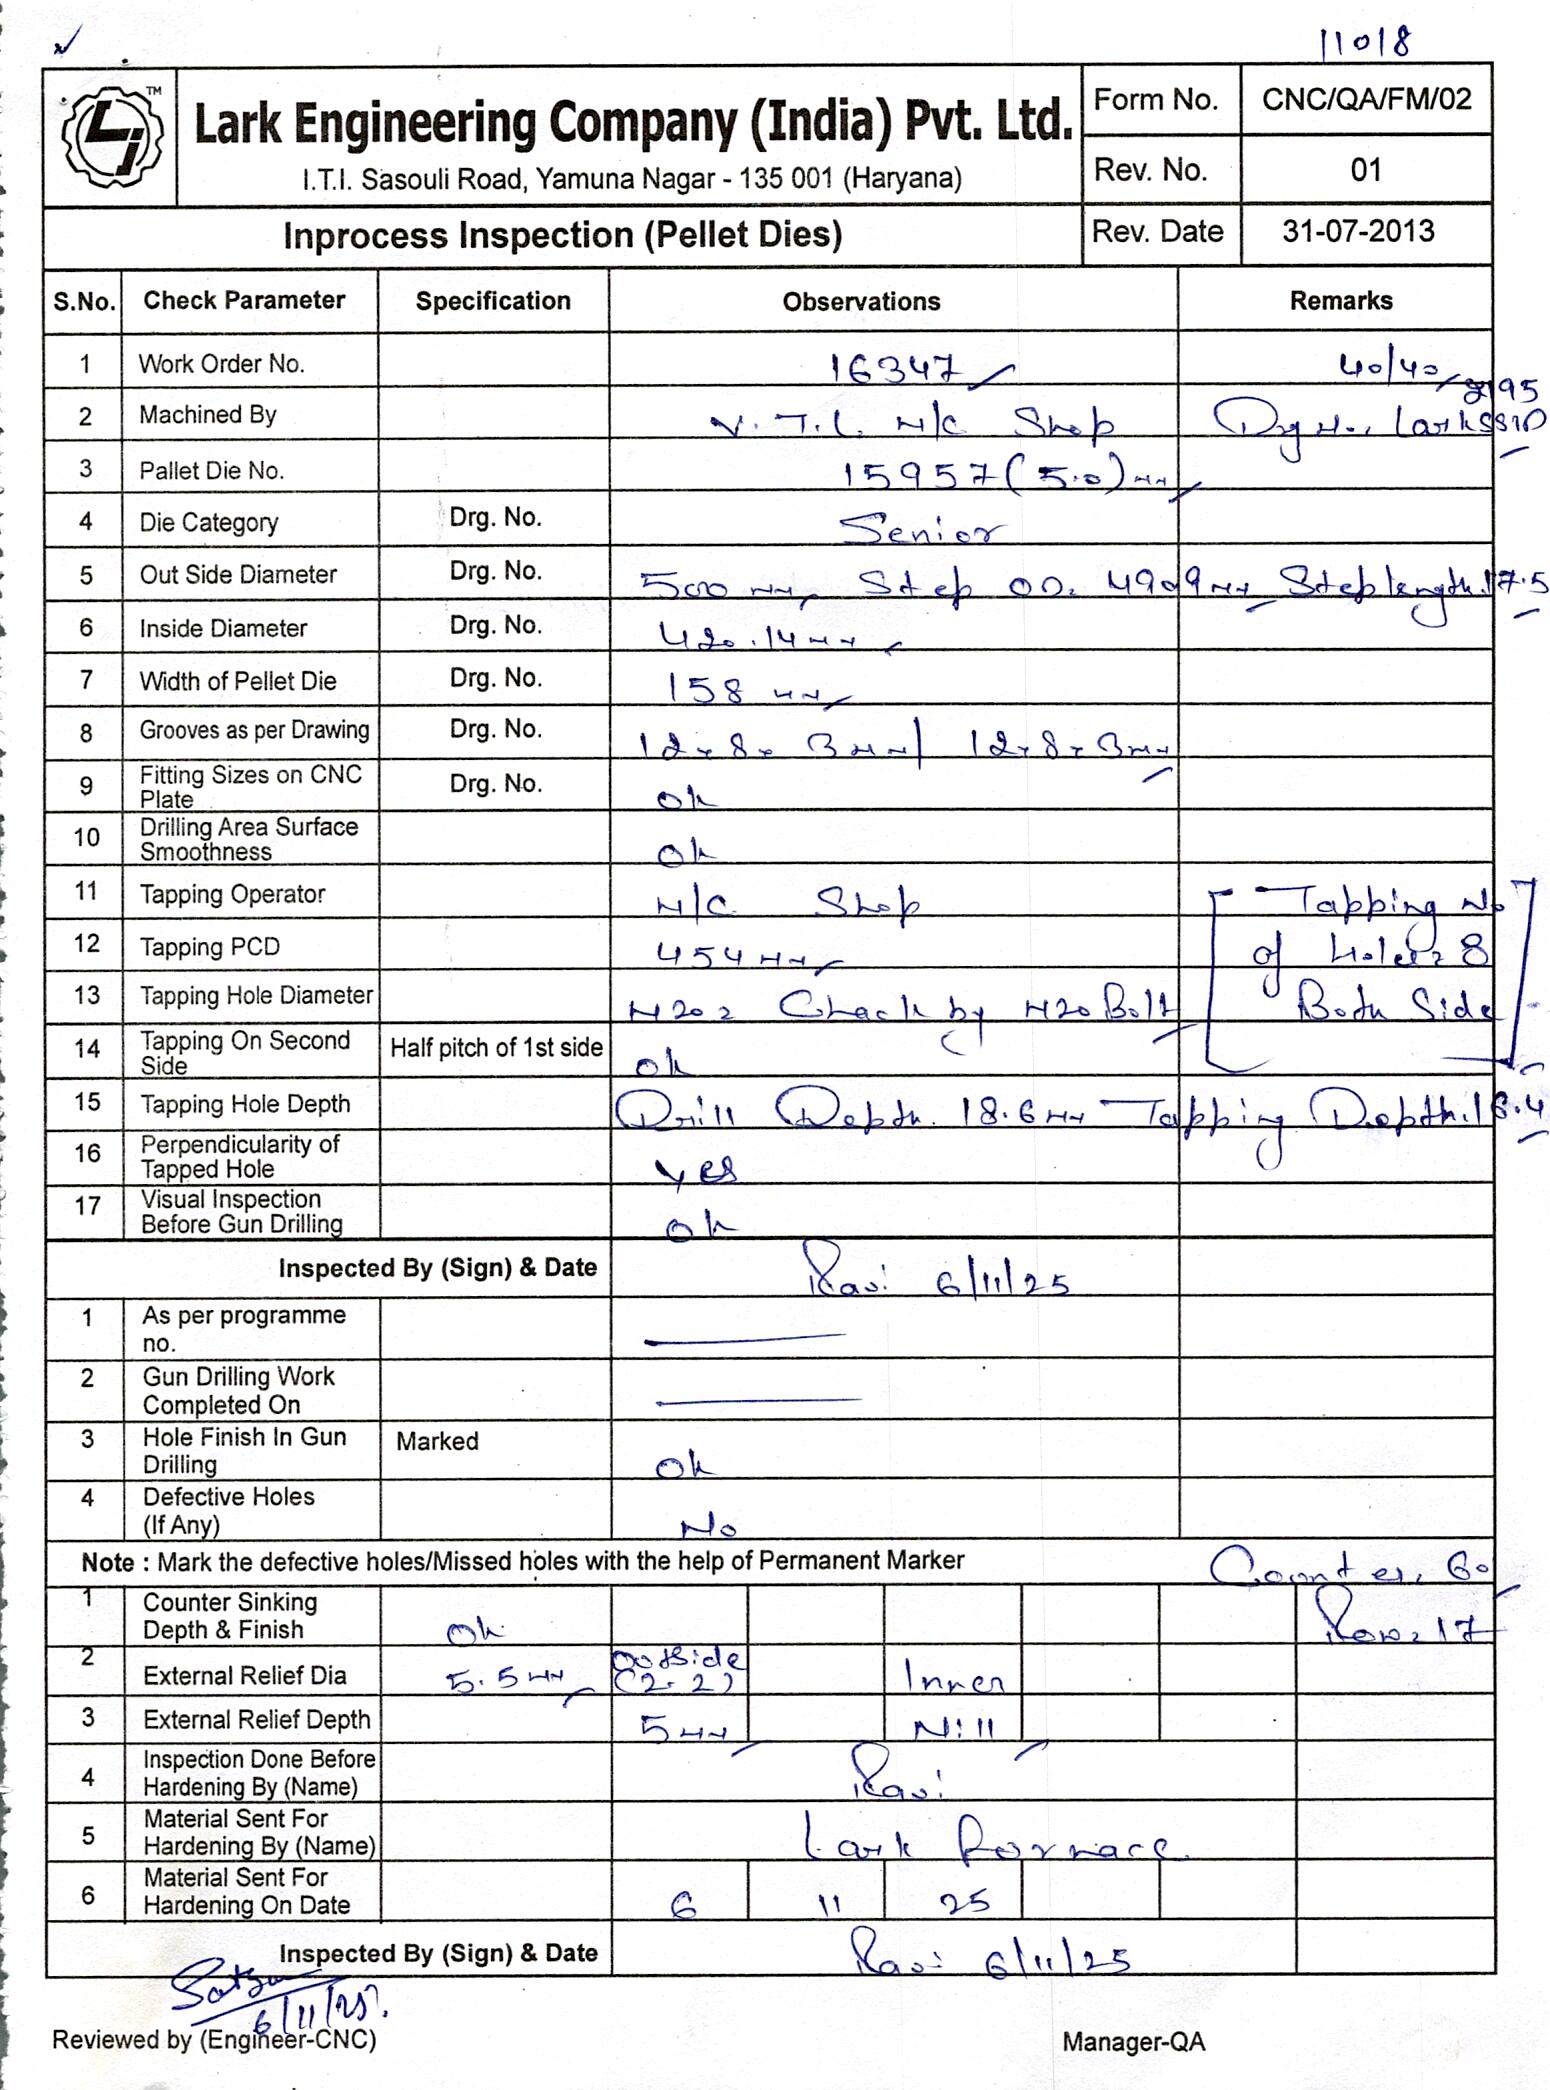 11018
TM
Lark Engineering Company (India) Pvt. Ltd.
I.T.I. Sasouli Road, Yamuna Nagar - 135 001 (Haryana)
Form No. CNC/QA/FM/02
Rev. No. 01
Inprocess Inspection (Pellet Dies) Rev. Date 31-07-2013
S.No. Check Parameter Specification Observations Remarks
1 Work Order No. 16347 40/40
2 Machined By V.T.L. M/C Shop Drg No.
3 Pallet Die No. 15957 (5.0) mm
4 Die Category Drg. No. Senior
5 Out Side Diameter Drg. No. 500 mm Step OD. mm Step length. 17.5
6 Inside Diameter Drg. No. 420.14 mm
7 Width of Pellet Die Drg. No. 158 mm
8 Grooves as per Drawing Drg. No. 12x8x3mm | 12x8x3mm
9 Fitting Sizes on CNC Plate Drg. No. Ok
10 Drilling Area Surface Smoothness Ok
11 Tapping Operator M/C Shop Tapping No
12 Tapping PCD 454 mm of Holes 8
13 Tapping Hole Diameter M20 = Chack by M20 Bolt Both Side
14 Tapping On Second Side Half pitch of 1st side Ok
15 Tapping Hole Depth Drill Depth. 18.6 mm Tapping Depth. 16.4
16 Perpendicularity of Tapped Hole Yes
17 Visual Inspection Before Gun Drilling Ok
Inspected By (Sign) & Date Ravi 6/11/25
1 As per programme no.
2 Gun Drilling Work Completed On
3 Hole Finish In Gun Drilling Marked Ok
4 Defective Holes (If Any) No
Note : Mark the defective holes/Missed holes with the help of Permanent Marker Counter. 60
1 Counter Sinking Depth & Finish Ok Row = 17
2 External Relief Dia 5.5 mm Outside (2.2) Inner
3 External Relief Depth 5 mm Nill
4 Inspection Done Before Hardening By (Name) Ravi
5 Material Sent For Hardening By (Name) Lark Fornace
6 Material Sent For Hardening On Date 6 11 25
Inspected By (Sign) & Date Ravi 6/11/25
6/11/25.
Reviewed by (Engineer-CNC) Manager-QA